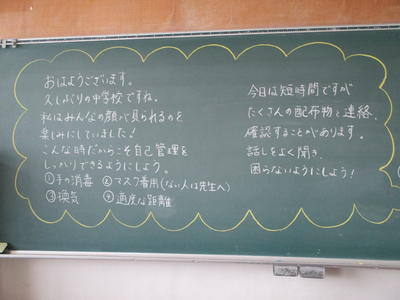 おはようございます。
久しぶりの中学校ですね。
私はみんなの顔が見られるのを
楽しみにしていました！
こんな時だからこそ自己管理を
しっかりできるようにしよう。
①手の消毒 ②マスク着用(ない人は先生へ)
③換気 ④適度な距離
今日は短時間ですが
たくさんの配布物と連絡、
確認することがあります。
話しをよく聞き、
困らないようにしよう！